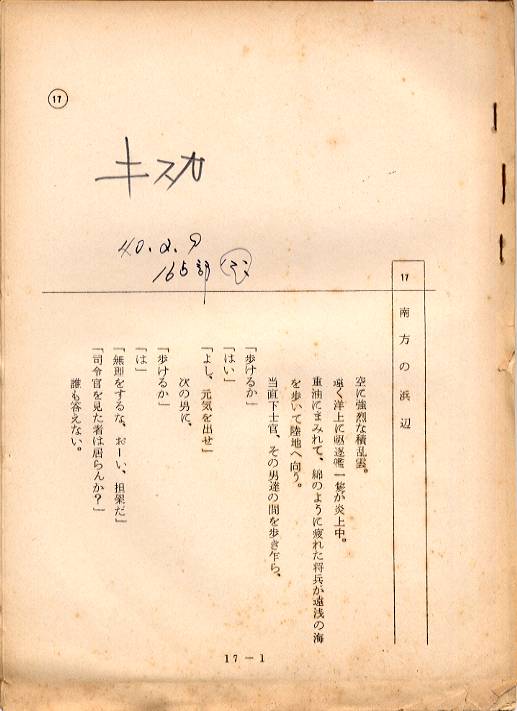 17
キスカ
40.2.9
165部
17 南方の浜辺
空に強烈な積乱雲。
遠く洋上に駆逐艦一隻が炎上中。
重油にまみれて、綿のように疲れた将兵が遠浅の海
を歩いて陸地へ向う。
当直下士官、その男達の間を歩き乍ら、
「歩けるか」
「はい」
「よし、元気を出せ」
次の男に、
「歩けるか」
「は」
「無理をするな、おーい、担架だ」
「司令官を見た者は居らんか？」
誰も答えない。
17－1